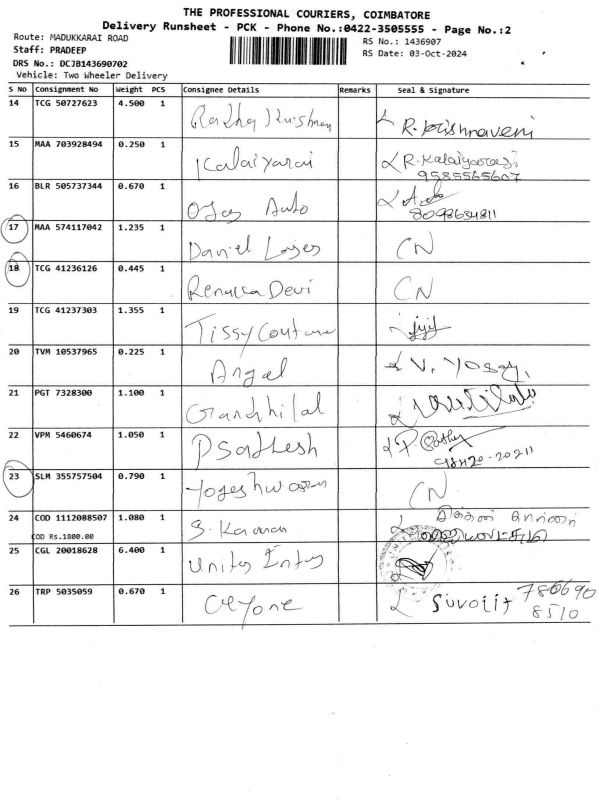 THE PROFESSIONAL COURIERS, COIMBATORE
Delivery Runsheet - PCK - Phone No.:0422-3505555 - Page No.:2
Route: MADUKKARAI ROAD
RS No.: 1436907
Staff: PRADEEP
RS Date: 03-Oct-2024
DRS No.: DCJB143690702
Vehicle: Two Wheeler Delivery
S No Consignment No Weight PCS Consignee Details Remarks Seal & Signature
14 TCG 50727623 4.500 1 R. Krishnaveni
15 MAA 703928494 0.250 1 Kalaiyarai R. Kalaiyarasi
9585565607
16 BLR 505737344 0.670 1 Auto
8098634811
17 MAA 574117042 1.235 1 Daniel CN
18 TCG 41236126 0.445 1 Renuka Devi CN
19 TCG 41237303 1.355 1 Tissy
20 TVM 10537965 0.225 1 Angel V.
21 PGT 7328300 1.100 1
22 VPM 5460674 1.050 1 P.
23 SLM 355757504 0.790 1 Yogeshwaran CN
24 COD 1112088507 1.080 1 S. Kannan
COD Rs.1800.00
25 CGL 20018628 6.400 1
26 TRP 5035059 0.670 1 Ceyone Suvojit 786690
8510